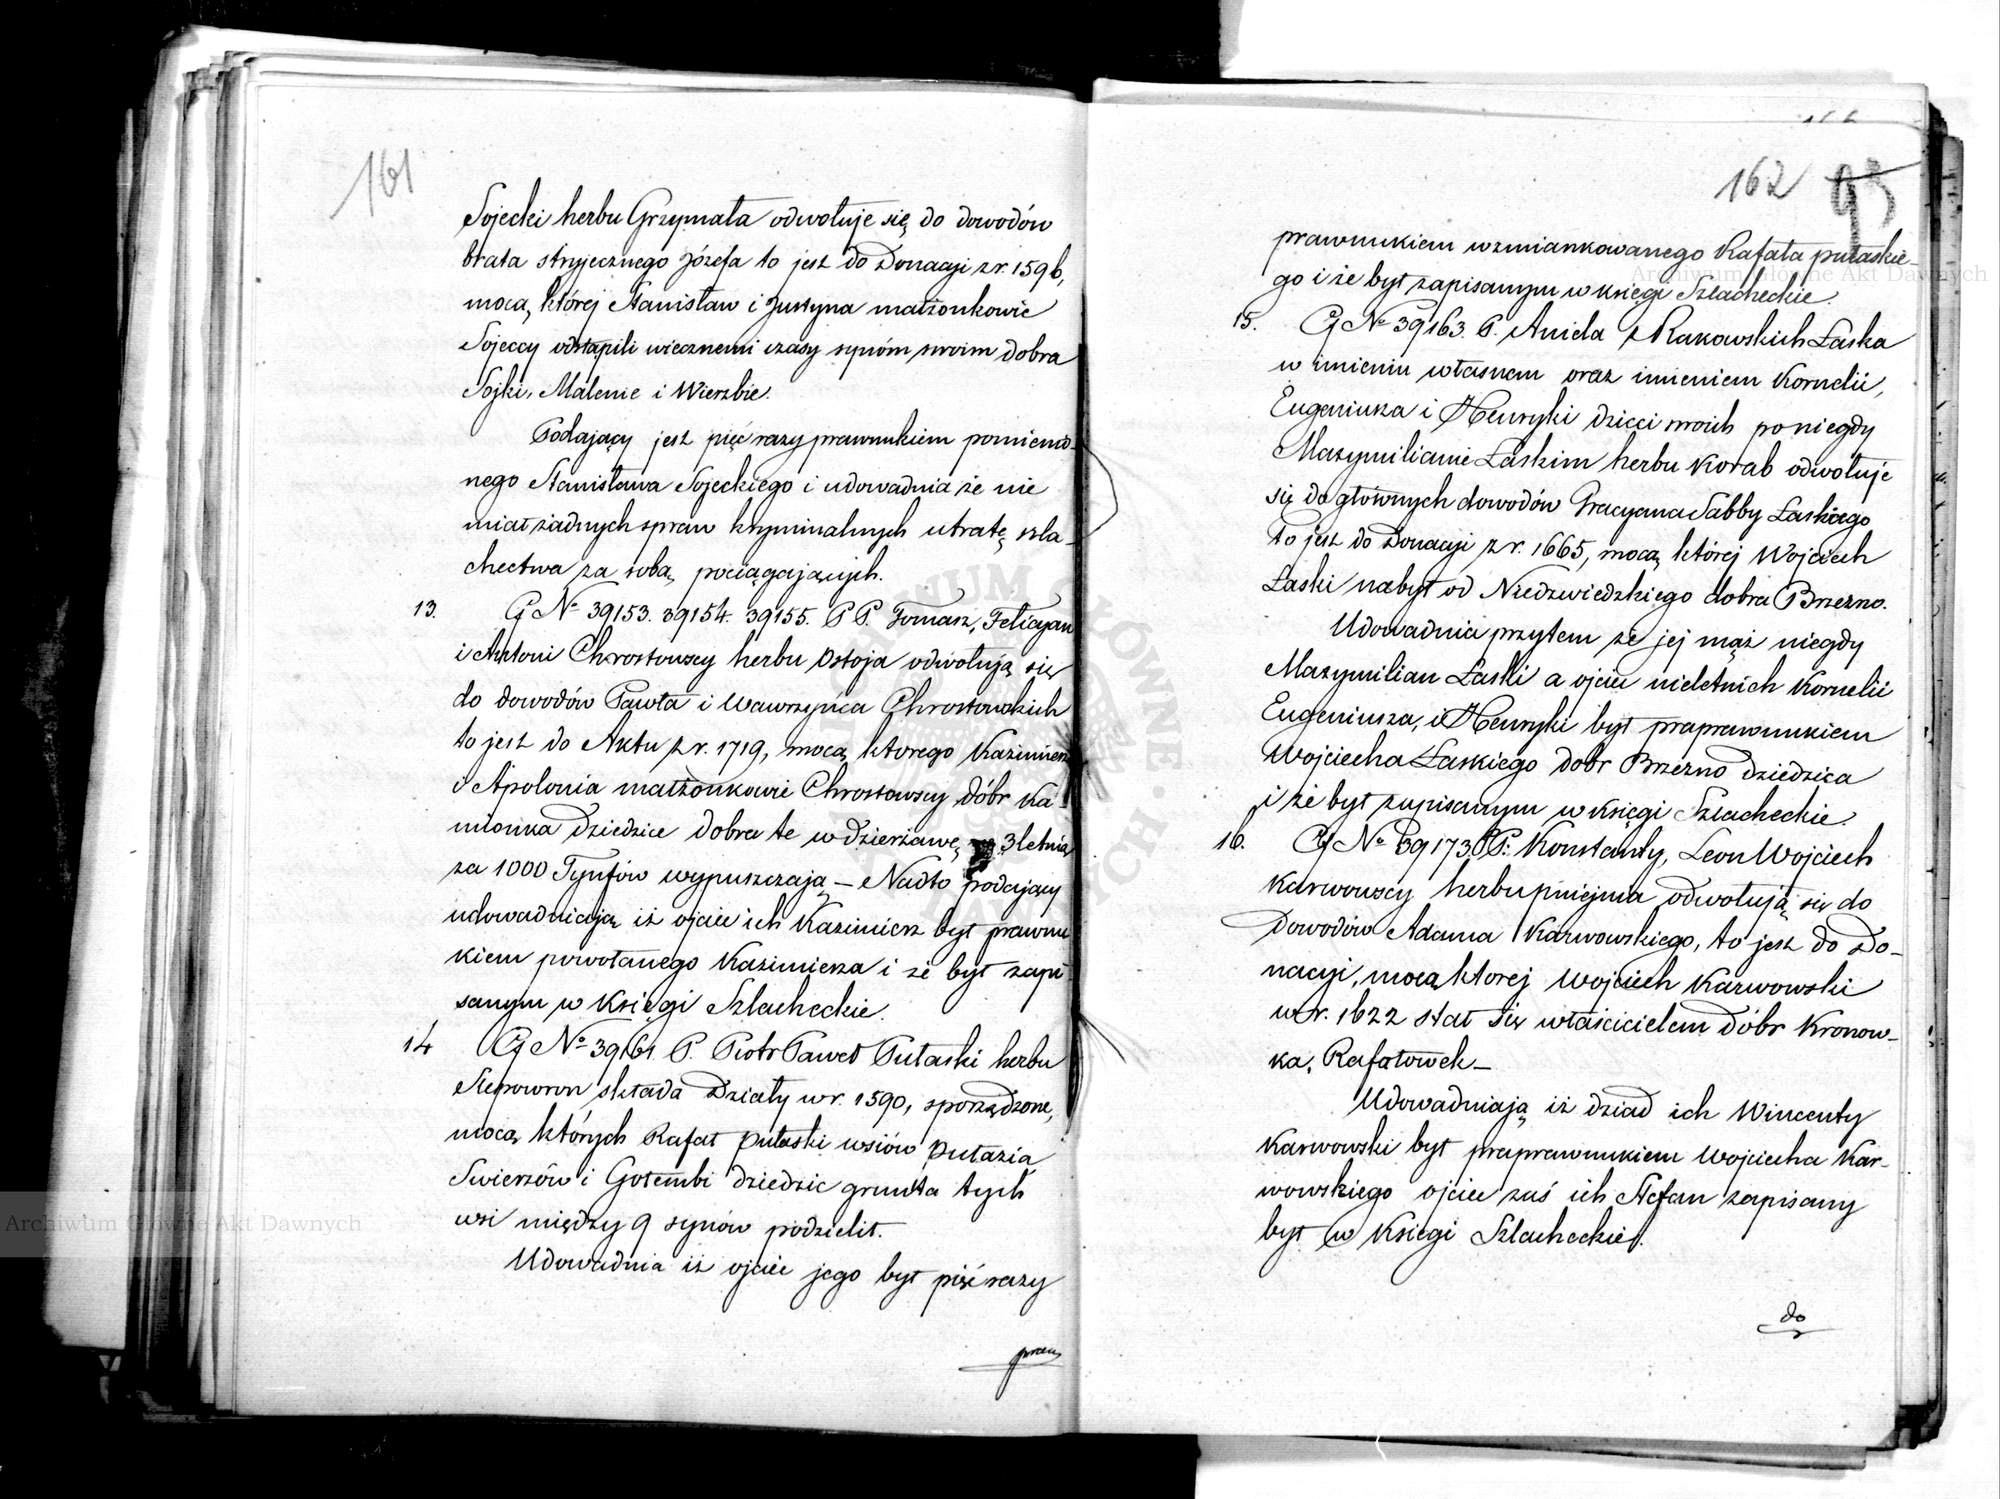 161
Sojecki herbu Grzymała odwołuje się do dowodów
brata stryjecznego Józefa to jest do Donacyi z r. 1596,
mocą której Stanisław i Justyna małżonkowie
Sojeccy odstąpili wiecznemi czasy synóm swoim dobra
Sojki, Malenie i Wierzbie.
Podający jest pięć razy prawnukiem pomienio-
nego Stanisława Sojeckiego i udowadnia że nie
miał żadnych spraw kryminalnych utratę szla-
chectwa za sobą pociągających.
13. No 39153. 39154. 39155. P P. Tomasz, Felicyan
i Antoni Chrostowscy herbu Ostoja odwołują się
do dowodów Pawła i Wawrzyńca Chrostowskich
to jest do Aktu z r. 1719, mocą którego Kazimierz
i Apolonia małżonkowie Chrostowscy dóbr Ka-
mionka dziedzice dobra te w dzierżawę 3 letnią
za 1000 Tynfów wypuszczają — Nadto podający
udowadniają iż ojciec ich Kazimierz był prawnu
kiem powołanego Kazimierza i że był zapi-
sanym w Księgi Szlacheckie.
14 No 39161 P. Piotr Paweł Pułaski herbu
Slepowron składa Działy w r. 1590, sporządzone,
mocą których Rafał Pułaski wsiów Pułazia
Swierzów i Gołembi dziedzic grunta tych
wsi między 9 synów podzielił.
Udowadnia iż ojciec jego był pięć razy
praw
162 93
prawnukiem wzmiankowanego Rafała Pułaskie-
go i że był zapisanym w Księgi Szlacheckie.
15. No 39163. P. Aniela z Rakowskich Łaska
w imieniu własnem oraz imieniem Kornelii,
Eugeniusza i Henryki dzieci swoich po niegdy
Maxymilianie Łaskim herbu Korab odwołuje
się do głównych dowodów Gracyana Sabby Łaskiego
to jest do Donacyi z r. 1665, mocą której Wojciech
Łaski nabył od Niedzwiedzkiego dobra Brzezno.
Udowadnia przytem że jej mąż niegdy
Maxymilian Łaski a ojciec nieletnich Kornelii
Eugeniusza, i Henryki był praprawnukiem
Wojciecha Łaskiego dobr Brzezno dziedzica
i że był zapisanym w Księgi Szlacheckie.
16. No 39173. PP. Konstanty, Leon Wojciech
Karwowscy herbu Pniejnia odwołują się do
Dowodów Adama Karwowskiego, to jest do Do-
nacyi, mocą ktorej Wojciech Karwowski
w r. 1622 stał się właścicielem dóbr Kronow-
ka, Rafałowek —
Udowadniają iż dziad ich Wincenty
Karwowski był praprawnukiem Wojciecha Kar-
wowskiego ojciec zaś ich Stefan zapisany
był w Księgi Szlacheckie.
do
Archiwum Główne Akt Dawnych
Archiwum Główne Akt Dawnych